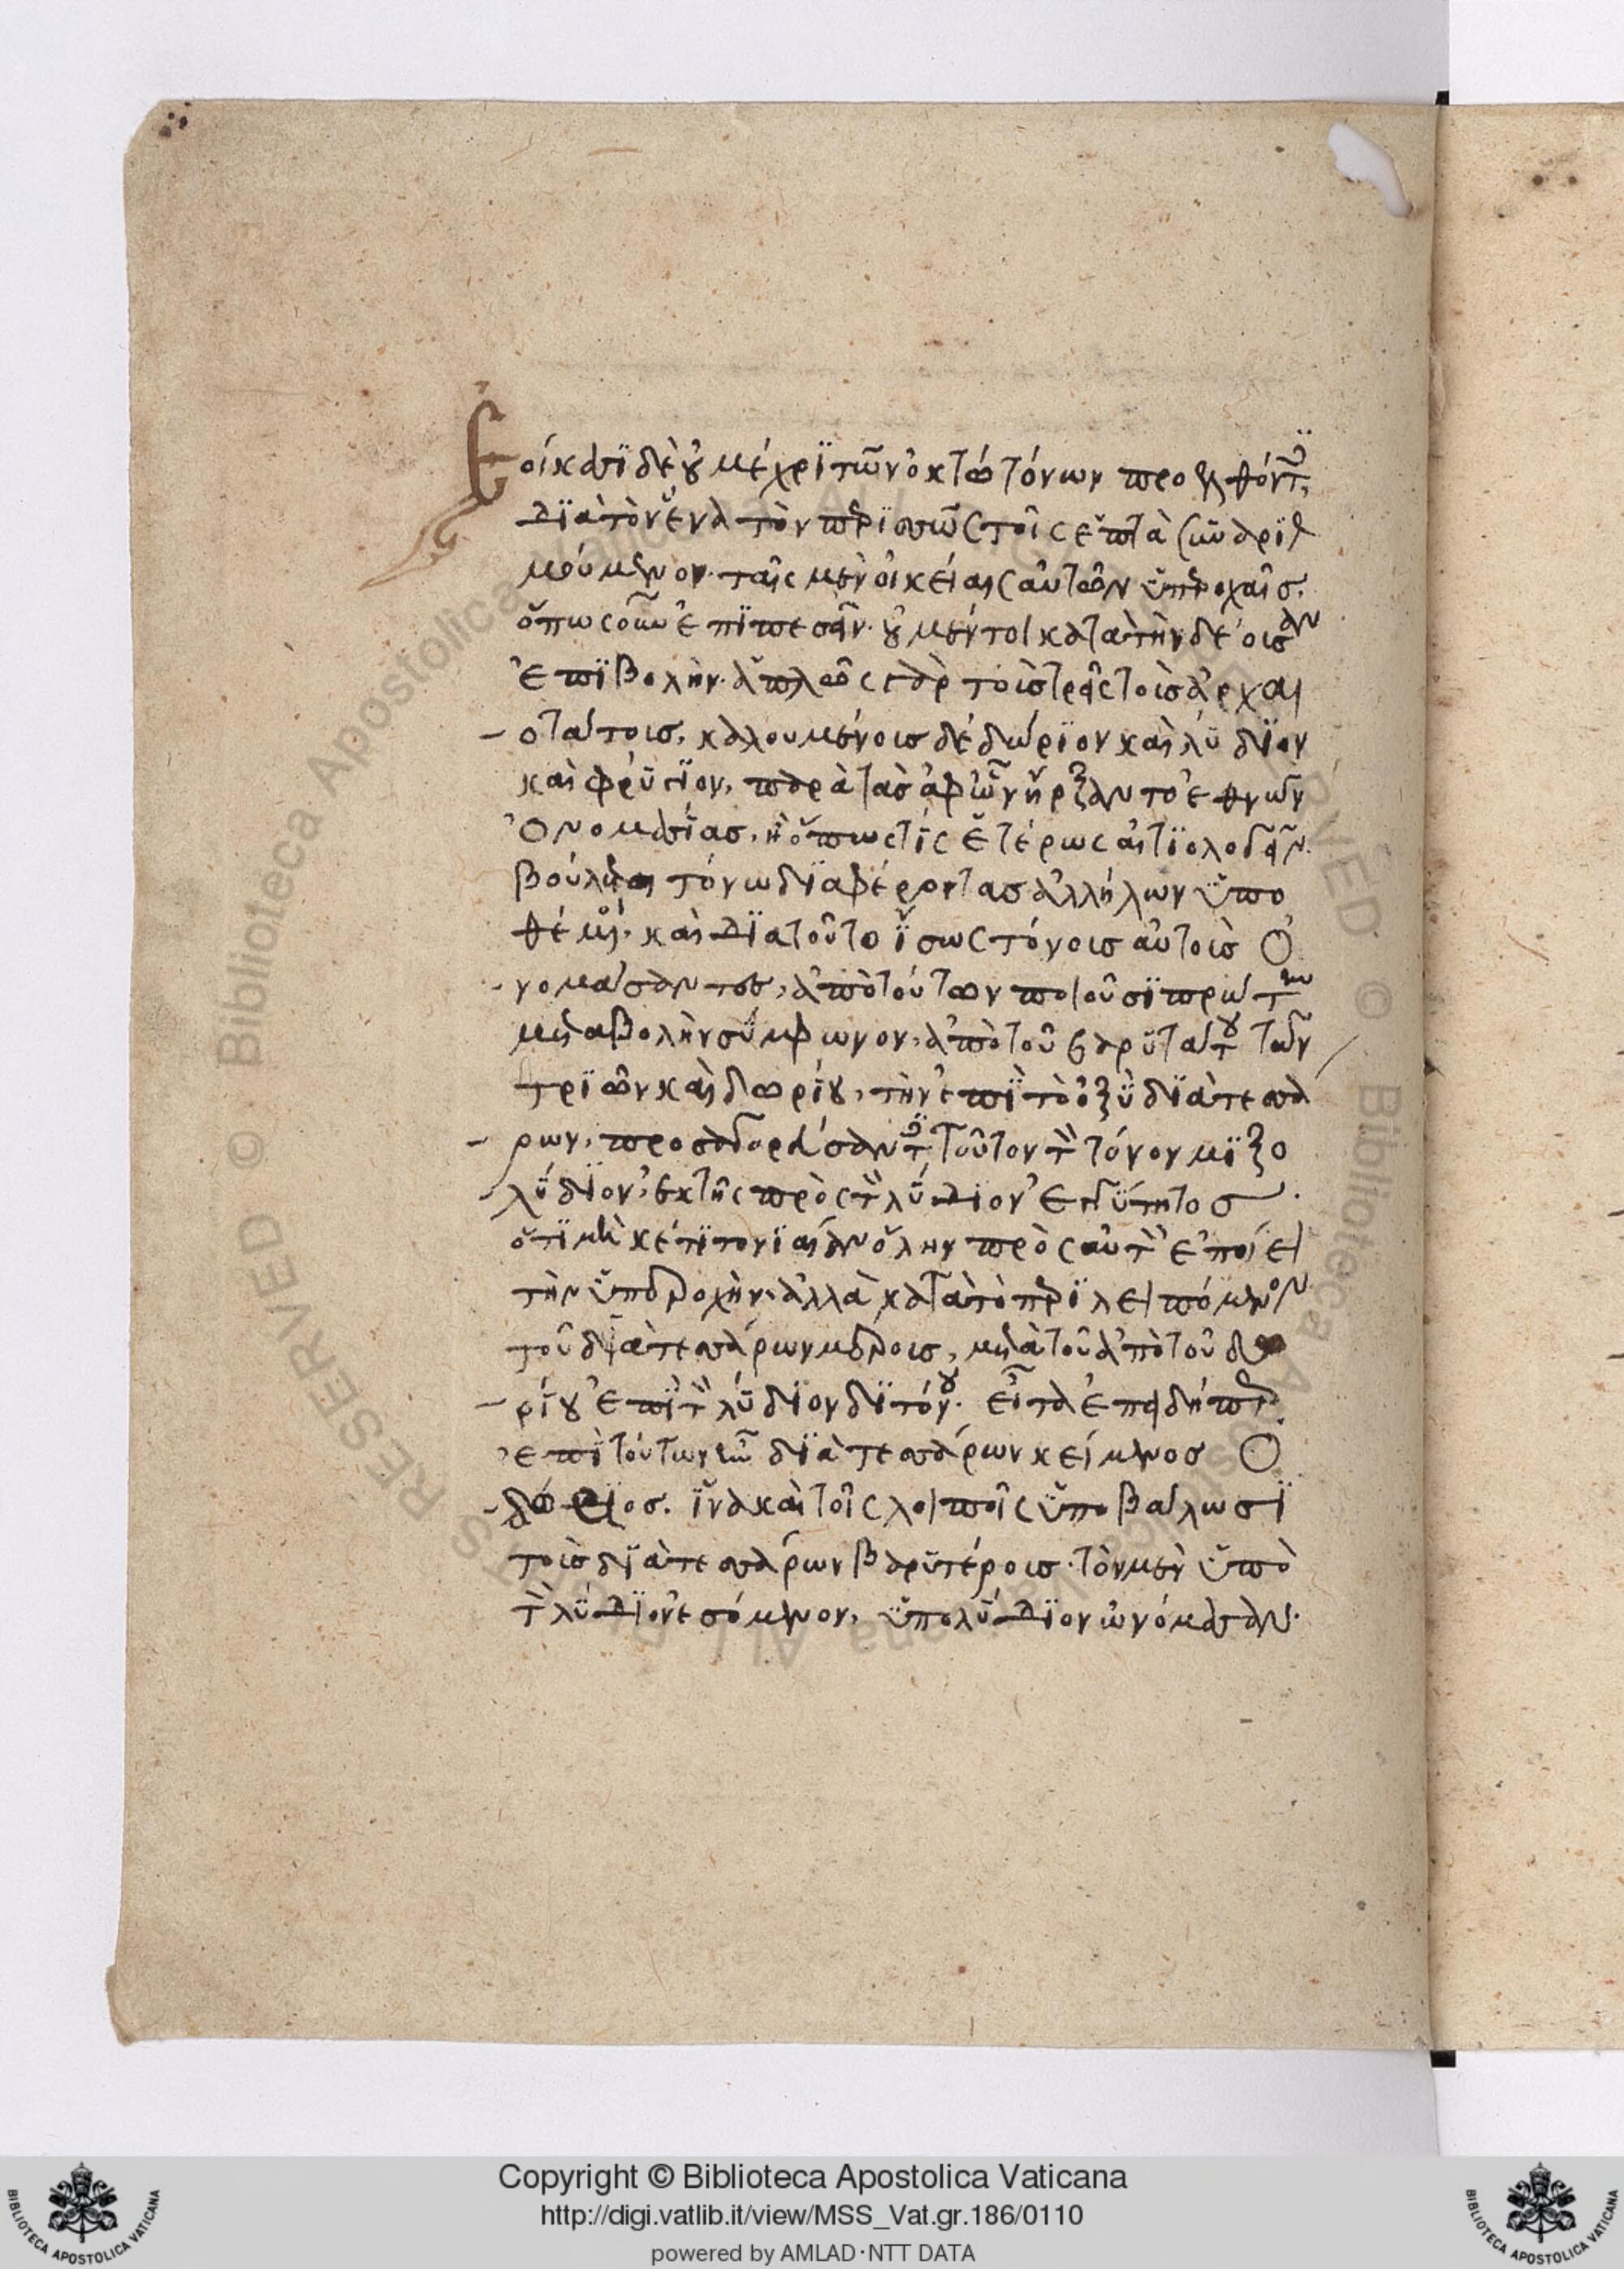 Ἐοίκασϊ δὲ οὐ μέχρϊ τῶν ὀκτὼ τόνων προελθόντες
διὰ τὸν ἕνα τὸν περισσῶς τοῖς ἑπτὰ συναριθ
μούμενον. ταῖς μὲν οἰκείαις αὐτῶν ὑπεροχαῖς.
ὅπως οὖν ἐπιπεσεῖν. οὐ μέντοι κατὰ τὴν δέουσαν
ἐπιβολὴν. ἁπλῶς γὰρ τοὺς τρεῖς τοὺς ἀρχαι
οτάτους, καλουμένους δὲ δώριον καὶ λύδιον
καὶ φρύγιον, παρὰ τὰς ἀφ' ὧν ἤρξαντο ἐθνῶν
ὀνομασίας, ἢ ὅπως τὶς ἑτέρως αἰτιολογεῖν
βούλεται τόνῳ διαφέροντας ἀλλήλων ὑπο
θέμενοι. καὶ διὰ τοῦτο ἴσως τόνους αὐτοὺς ὀ
νομάσαντες, ἀπὸ τούτων ποιοῦσι πρώτην
μεταβολὴν σύμφωνον, ἀπὸ τοῦ βαρυτάτου τῶν
τριῶν καὶ δωρίου, τὴν ἐπὶ τὸ ὀξὺ διὰ τεσσά
ρων, προσαγορεύσαντες τοῦτον τὸν τόνον μιξο
λύδιον, ἐκ τῆς πρὸς τὸν λύδιον ἐγγύτητος.
ὅτι μὴ κέτι τονιαίαν ὅλην πρὸς αὐτὸν ἐποίει
τὴν ὑπεροχὴν. ἀλλὰ κατὰ τὸ περιλειπόμενον
τοῦ διὰ τεσσάρων μέρους, μετὰ τοῦ ἀπὸ τοῦ δω
ρίου ἐπὶ τὸν λύδιον διτόνου. εἶτα ἐπειδήπερ
ἐπὶ τούτων ἦν διὰ τεσσάρων κείμενος ὁ
δώριος. ἵνα καὶ τοῖς λοιποῖς ὑποβάλωσϊ
τοὺς διὰ τεσσάρων βαρυτέρους. τὸν μὲν ὑπὸ
τὸν λύδιον ἐσόμενον, ὑπολύδιον ὠνόμασαν.
Copyright © Biblioteca Apostolica Vaticana
http://digi.vatlib.it/view/MSS_Vat.gr.186/0110
powered by AMLAD·NTT DATA
BIBLIOTECA APOSTOLICA VATICANA
BIBLIOTECA APOSTOLICA VATICANA